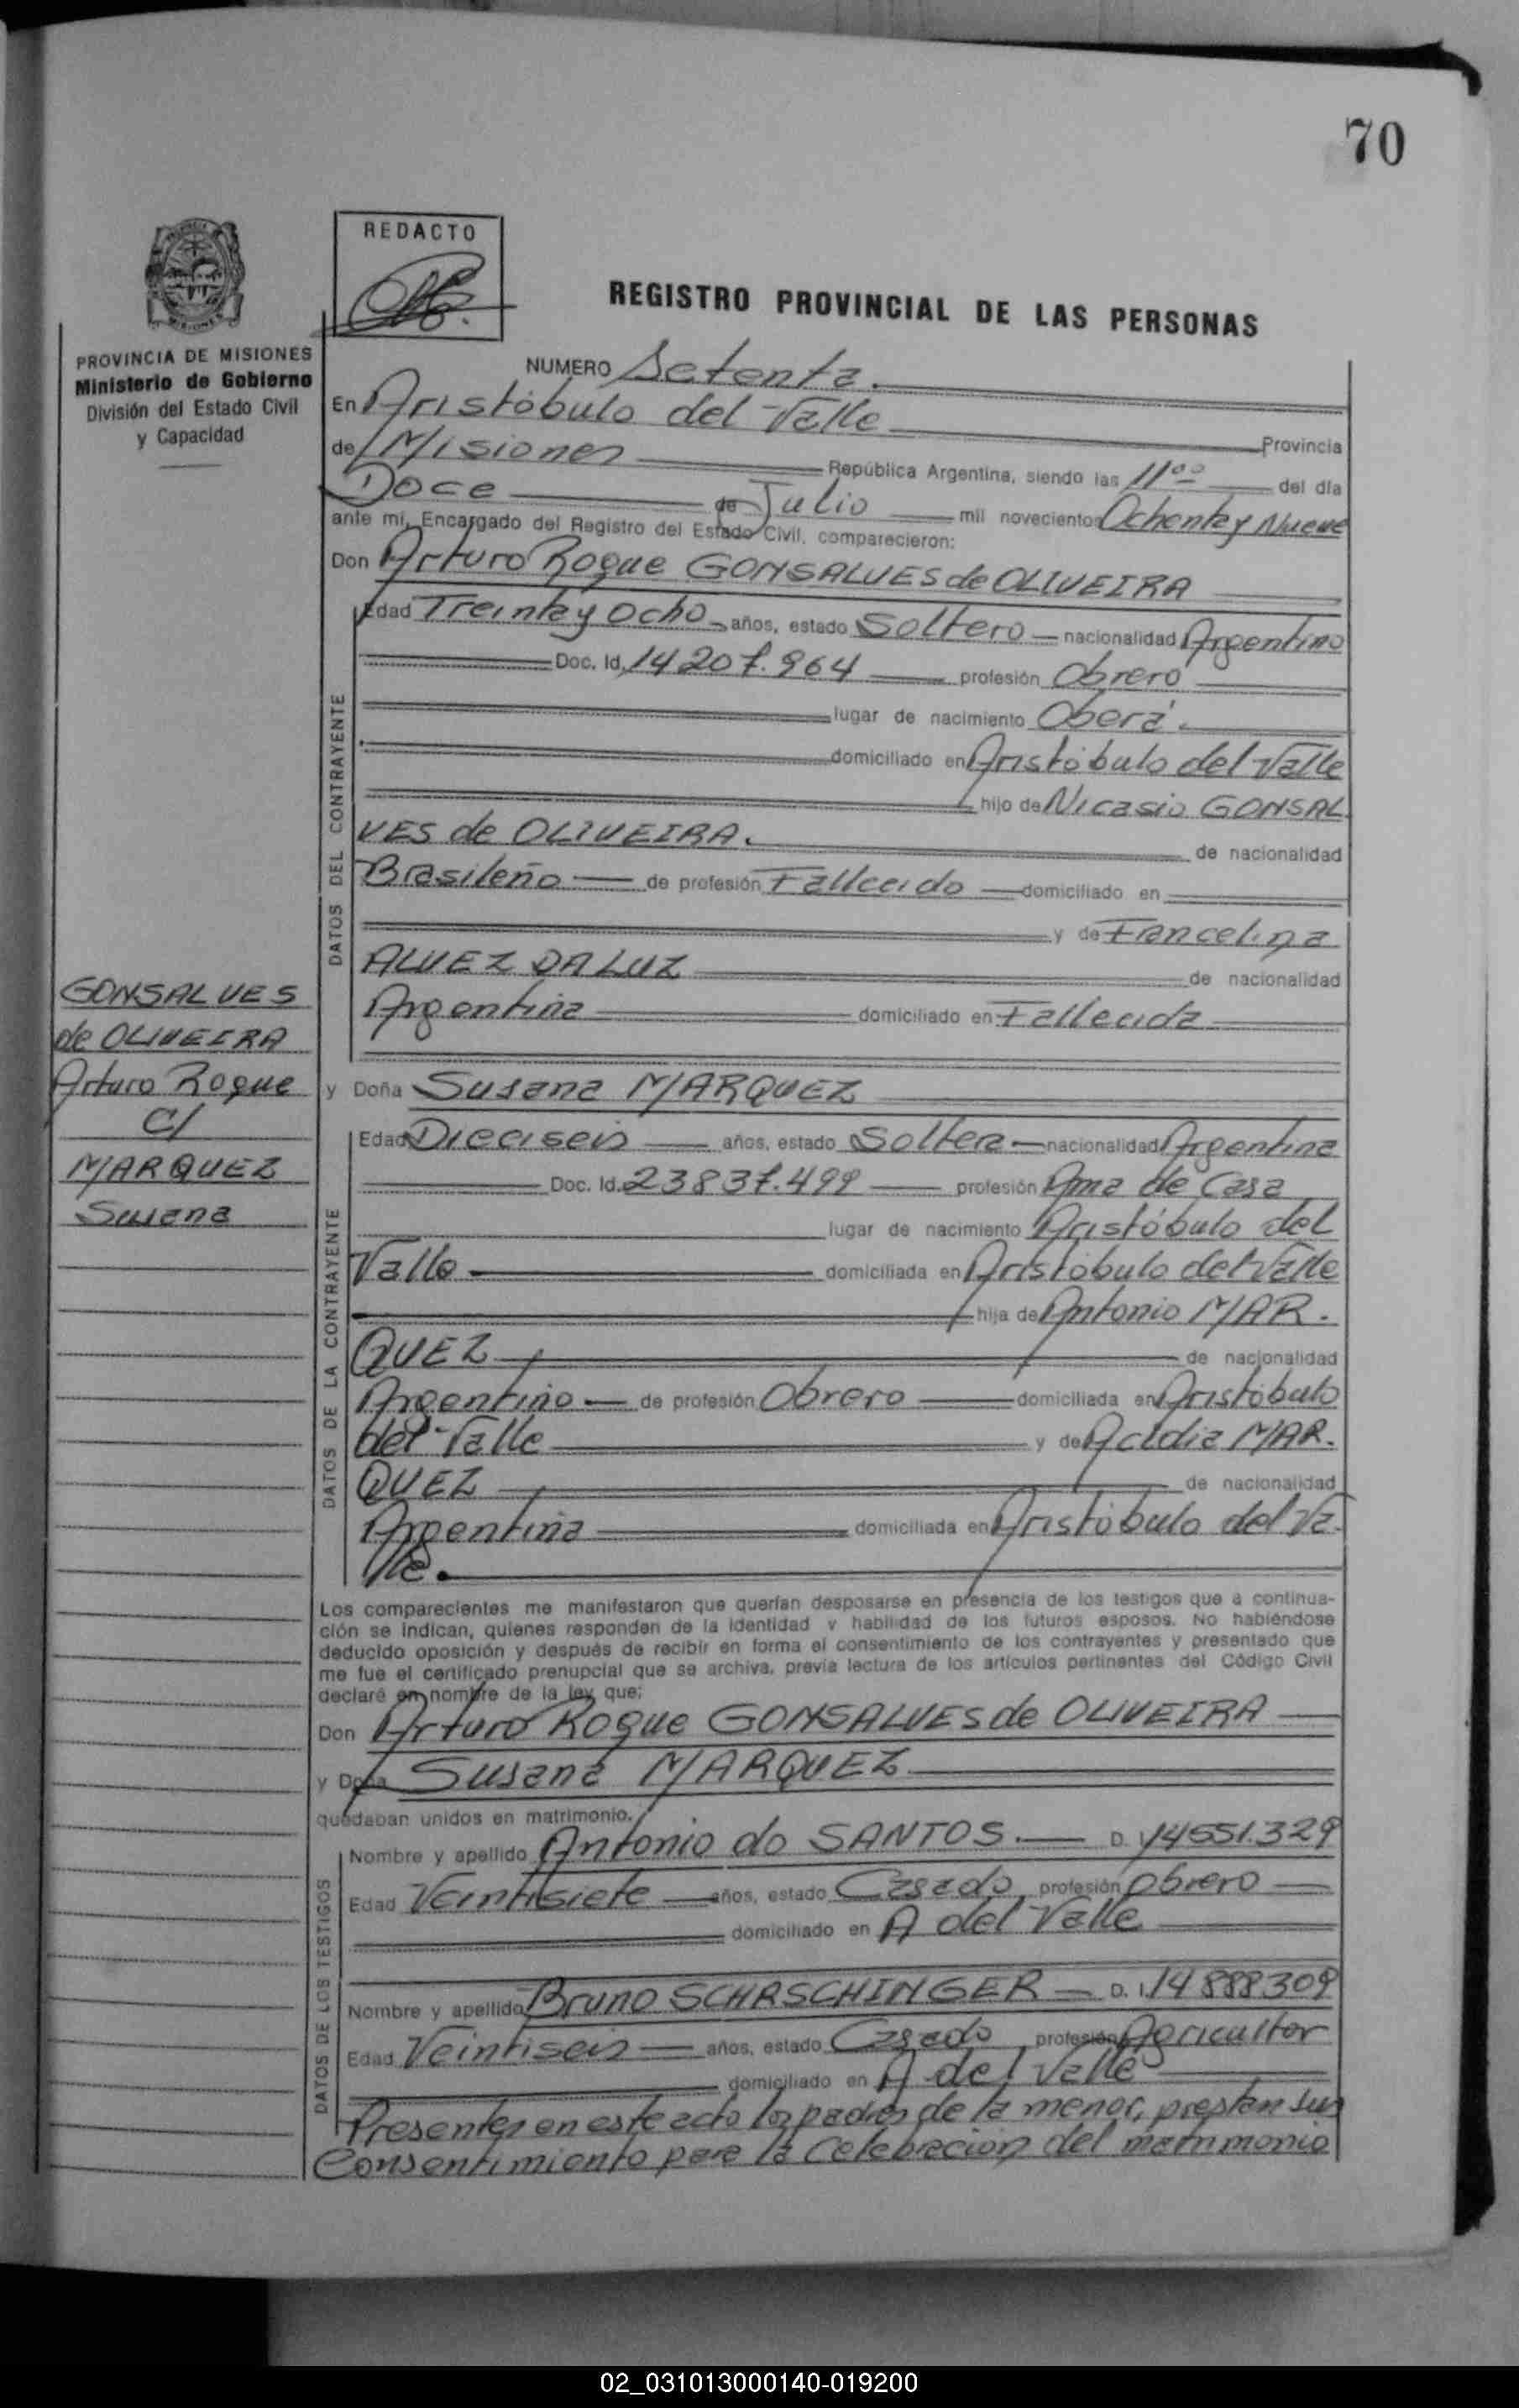 70
REDACTO
REGISTRO PROVINCIAL DE LAS PERSONAS
PROVINCIA DE MISIONES
Ministerio de Gobierno
División del Estado Civil
y Capacidad
NUMERO Setenta.
En Aristóbulo del Valle Provincia
de Misiones República Argentina, siendo las 11°° del día
Doce de Julio mil novecientos Ochenta y Nueve
ante mí, Encargado del Registro del Estado Civil, comparecieron:
Don Arturo Roque GONSALVES de OLIVEIRA
DATOS DEL CONTRAYENTE
Edad Treinta y Ocho años, estado Soltero nacionalidad Argentino
Doc. Id. 14207.964 profesión Obrero
lugar de nacimiento Oberá.
domiciliado en Aristóbulo del Valle
hijo de Nicasio GONSAL
VES de OLIVEIRA. de nacionalidad
Brasileño de profesión Fallecido domiciliado en
y de Francelina
ALVEZ DA LUZ de nacionalidad
Argentina domiciliado en Fallecida
GONSALVES
de OLIVEIRA
Arturo Roque
C/
MARQUEZ
Susana
y Doña Susana MARQUEZ
DATOS DE LA CONTRAYENTE
Edad Dieciseis años, estado Soltera nacionalidad Argentina
Doc. Id. 23837.499 profesión Ama de Casa
lugar de nacimiento Aristóbulo del
Valle domiciliada en Aristóbulo del Valle
hija de Antonio MAR.
QUEZ de nacionalidad
Argentino de profesión Obrero domiciliada en Aristóbulo
del Valle y de Acidia MAR.
QUEZ de nacionalidad
Argentina domiciliada en Aristóbulo del Va.
lle.
Los comparecientes me manifestaron que querían desposarse en presencia de los testigos que a continua-
ción se indican, quienes responden de la identidad y habilidad de los futuros esposos. No habiéndose
deducido oposición y después de recibir en forma el consentimiento de los contrayentes y presentado que
me fue el certificado prenupcial que se archiva, previa lectura de los artículos pertinentes del Código Civil
declaré en nombre de la ley que:
Don Arturo Roque GONSALVES de OLIVEIRA
y Doña Susana MARQUEZ
quedaban unidos en matrimonio.
DATOS DE LOS TESTIGOS
Nombre y apellido Antonio do SANTOS. D. I. 14551.329
Edad Veintisiete años, estado Casado profesión Obrero
domiciliado en A del Valle
Nombre y apellido Bruno SCHASCHINGER D. I. 14888309
Edad Veintiseis años, estado Casado profesión Agricultor
domiciliado en A del Valle
Presentes en este acto los padres de la menor, prestan sus
Consentimiento para la celebracion del matrimonio
02_031013000140-019200